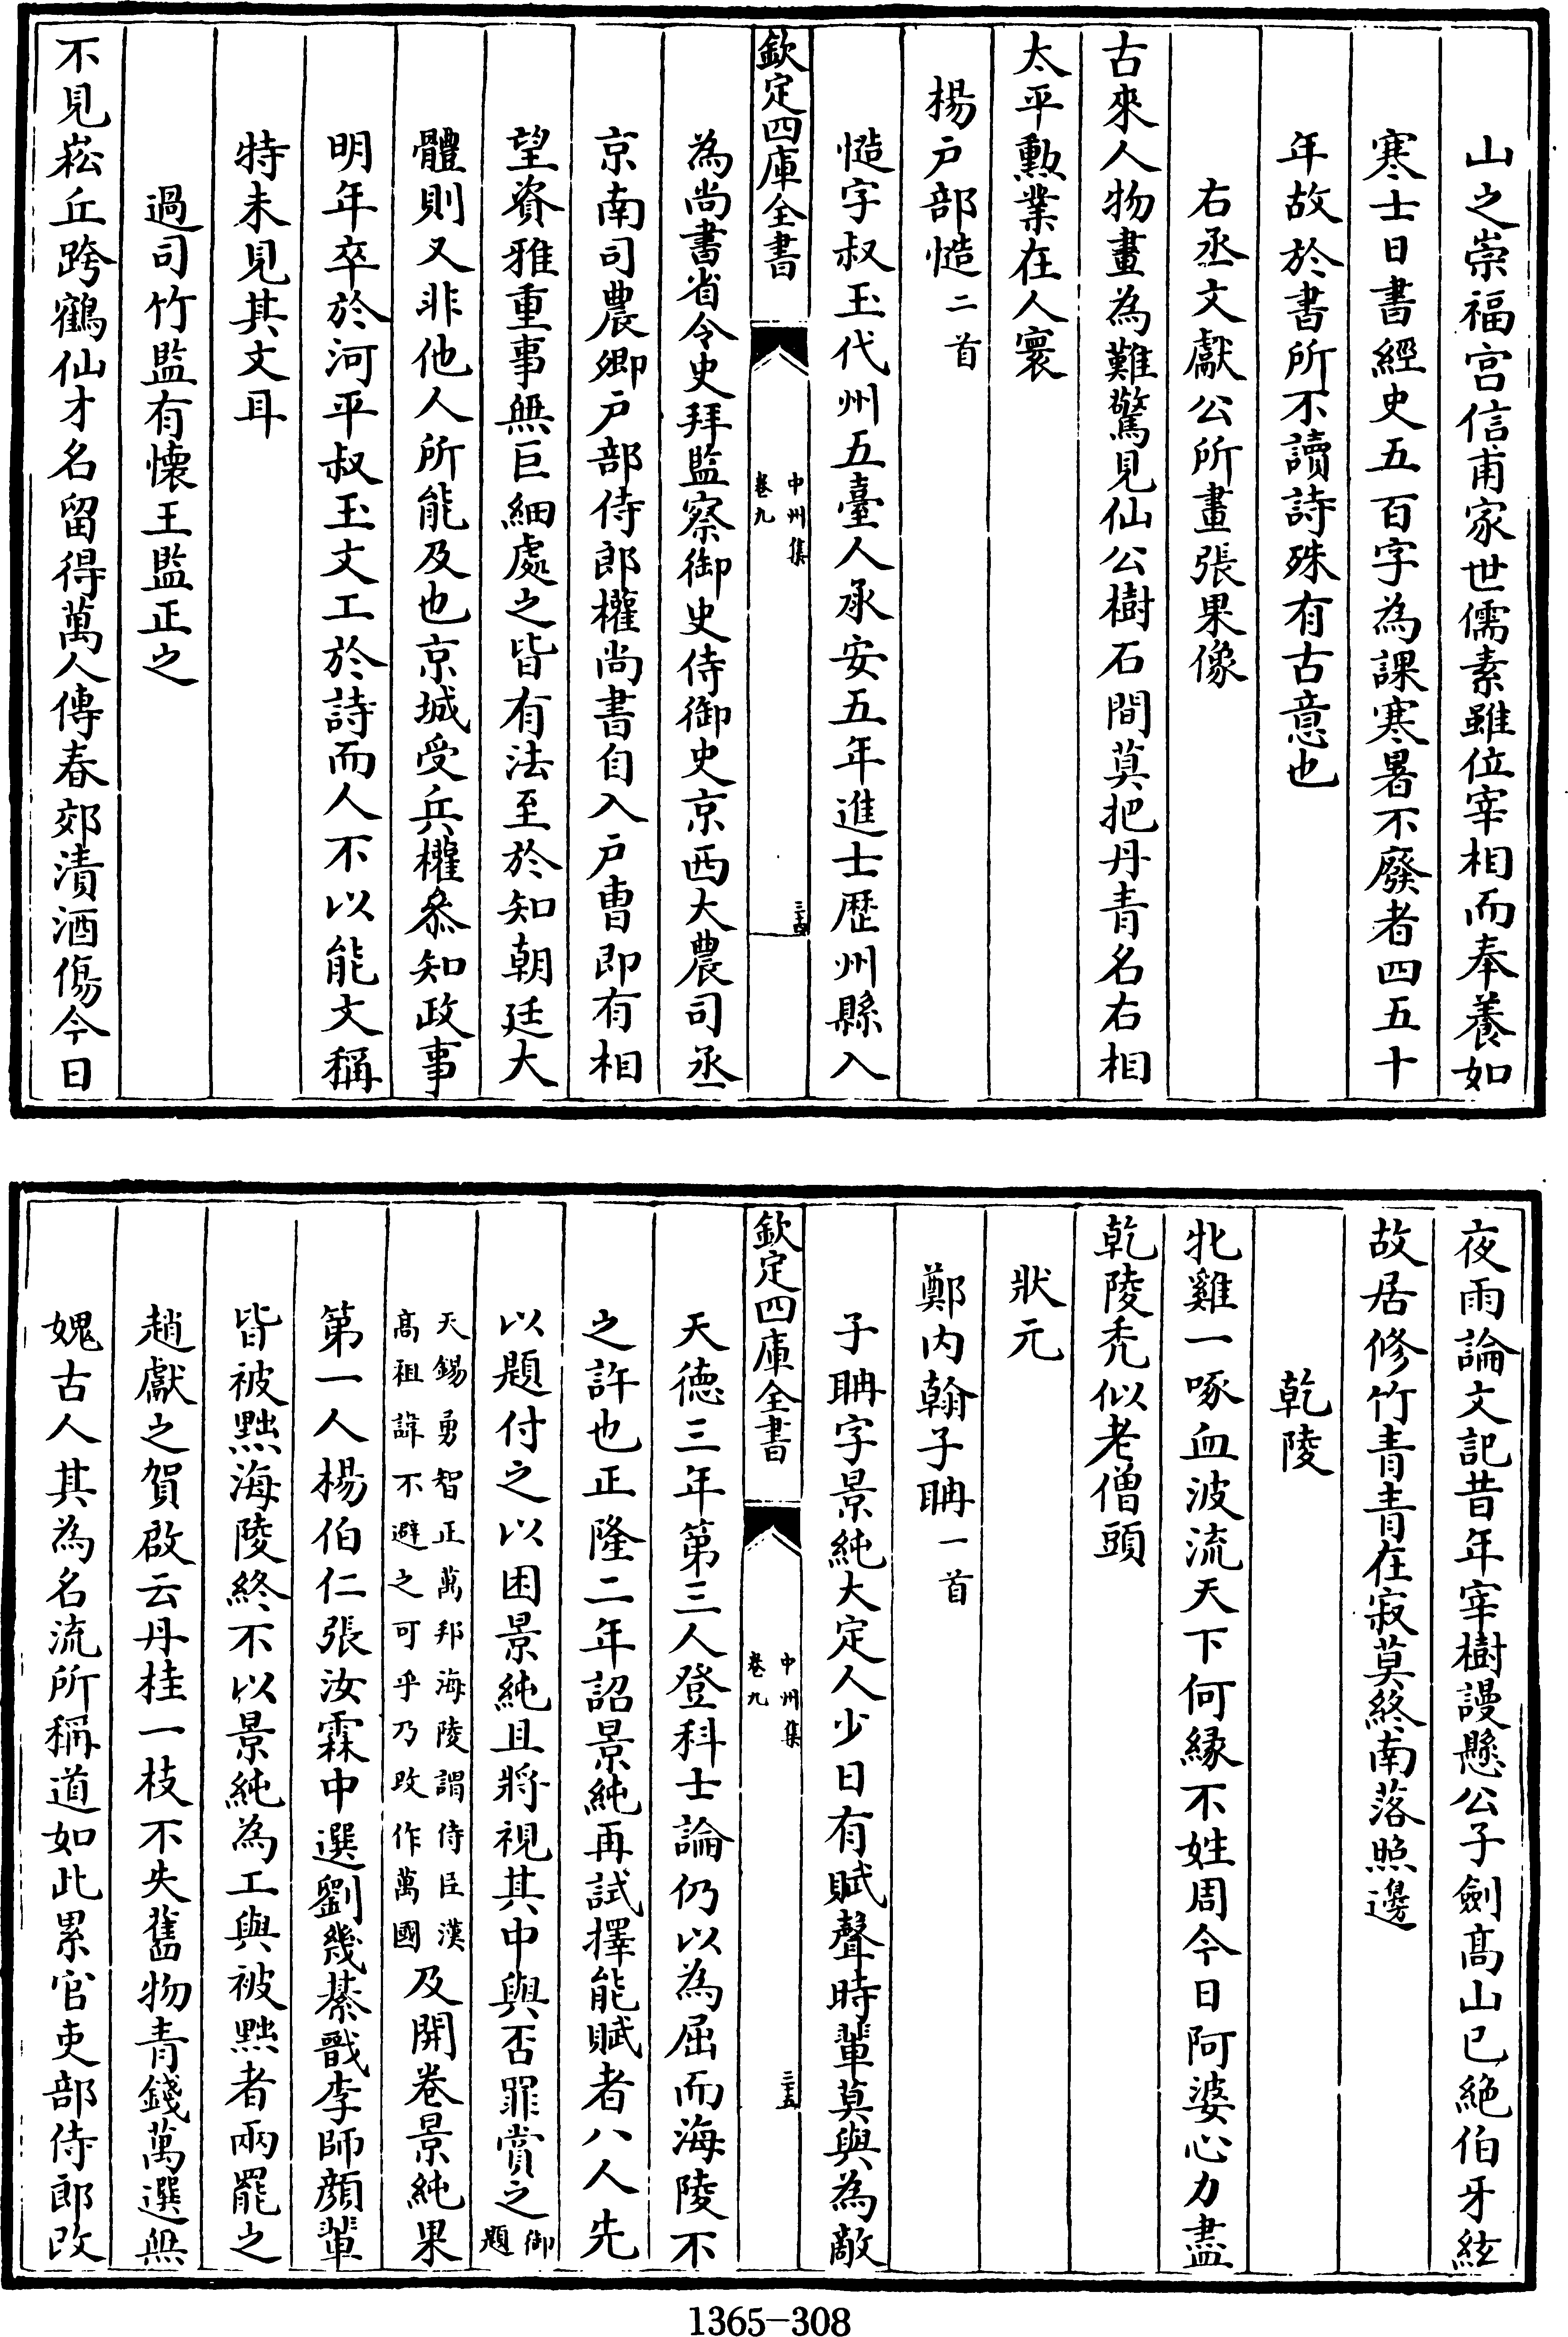 山之崇福宫信甫家世儒素雖位宰相而奉養如
寒士日書經史五百字為課寒暑不廢者四五十
年故於書所不讀詩殊有古意也
右丞文獻公所畫張果像
古來人物畫為難驚見仙公樹石間莫把丹青名右相
太平勲業在人寰
楊户部慥二首
慥字叔玉代州五臺人承安五年進士歴州縣入
欽定四庫全書
中州集
卷九
三十四
為尚書省令史拜監察御史侍御史京西大農司丞
京南司農卿户部侍郎權尚書自入户曹即有相
望資雅重事無巨細處之皆有法至於知朝廷大
體則又非他人所能及也京城受兵權叅知政事
明年卒於河平叔玉文工於詩而人不以能文稱
特未見其文耳
過司竹監有懐王監正之
不見崧丘跨鶴仙才名留得萬人傳春郊漬酒傷今日
夜雨論文記昔年宰樹謾懸公子劍髙山已絶伯牙絃
故居修竹青青在寂莫終南落照邊
乾陵
牝雞一啄血波流天下何縁不姓周今日阿婆心力盡
乾陵秃似老僧頭
狀元
鄭内翰子聃一首
子聃字景純大定人少日有賦聲時輩莫與為敵
欽定四庫全書
中州集
卷九
三十五
天德三年第三人登科士論仍以為屈而海陵不
之許也正隆二年詔景純再試擇能賦者八人先
以題付之以困景純且將視其中與否罪賞之御題
天錫勇智正萬邦海陵謂侍臣漢
髙祖諱不避之可乎乃改作萬國
及開卷景純果
第一人楊伯仁張汝霖中選劉幾綦戩李師顔輩
皆被黜海陵終不以景純為工與被黜者兩罷之
趙獻之賀啟云丹桂一枝不失舊物青錢萬選無
媿古人其為名流所稱道如此累官吏部侍郎改
1365-308